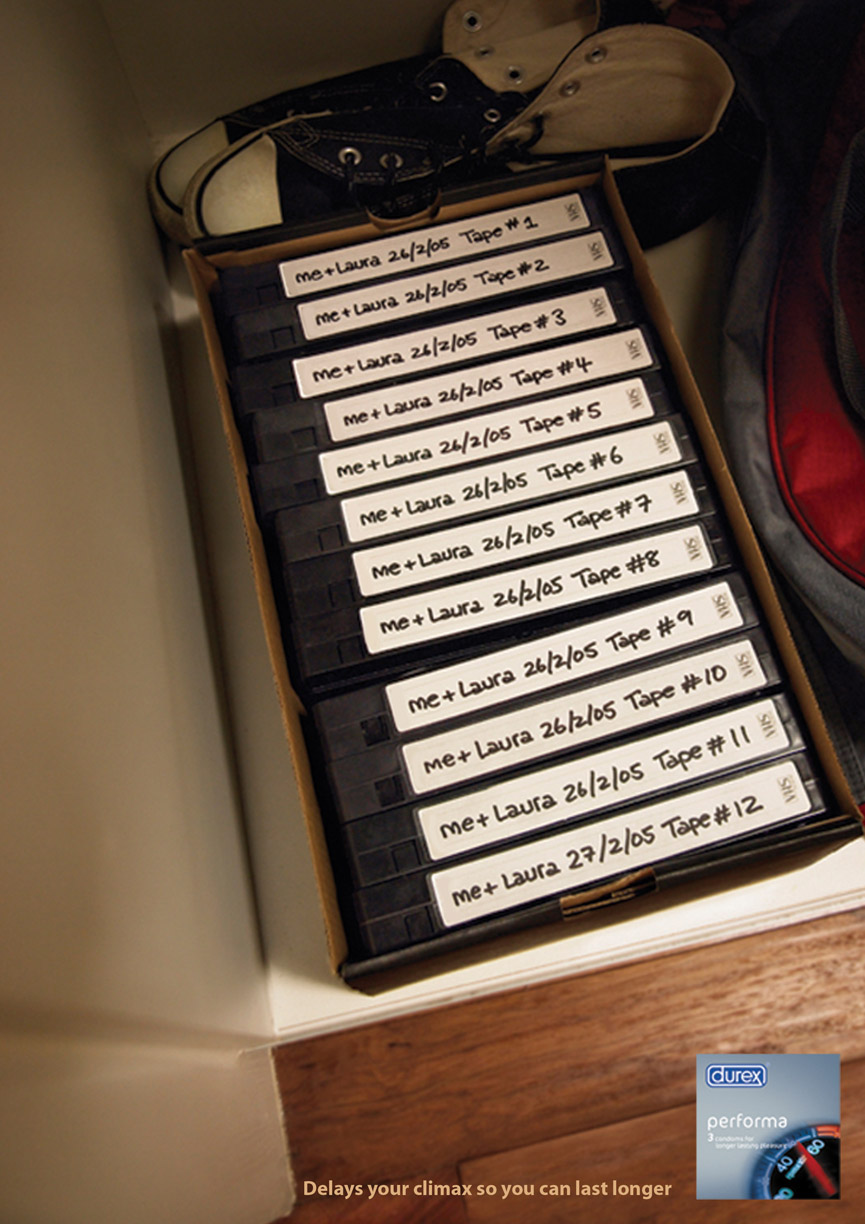 me + Laura 26/2/05 Tape # 1
VHS
me + Laura 26/2/05 Tape # 2
VHS
me + Laura 26/2/05 Tape # 3
VHS
me + Laura 26/2/05 Tape # 4
VHS
me + Laura 26/2/05 Tape # 5
VHS
me + Laura 26/2/05 Tape # 6
VHS
me + Laura 26/2/05 Tape # 7
VHS
me + Laura 26/2/05 Tape #8
VHS
me + Laura 26/2/05 Tape # 9
VHS
me + Laura 26/2/05 Tape # 10
VHS
me + Laura 26/2/05 Tape # 11
VHS
me + Laura 27/2/05 Tape # 12
VHS
durex
performa
3 condoms for
longer lasting pleasure
40 60
Delays your climax so you can last longer